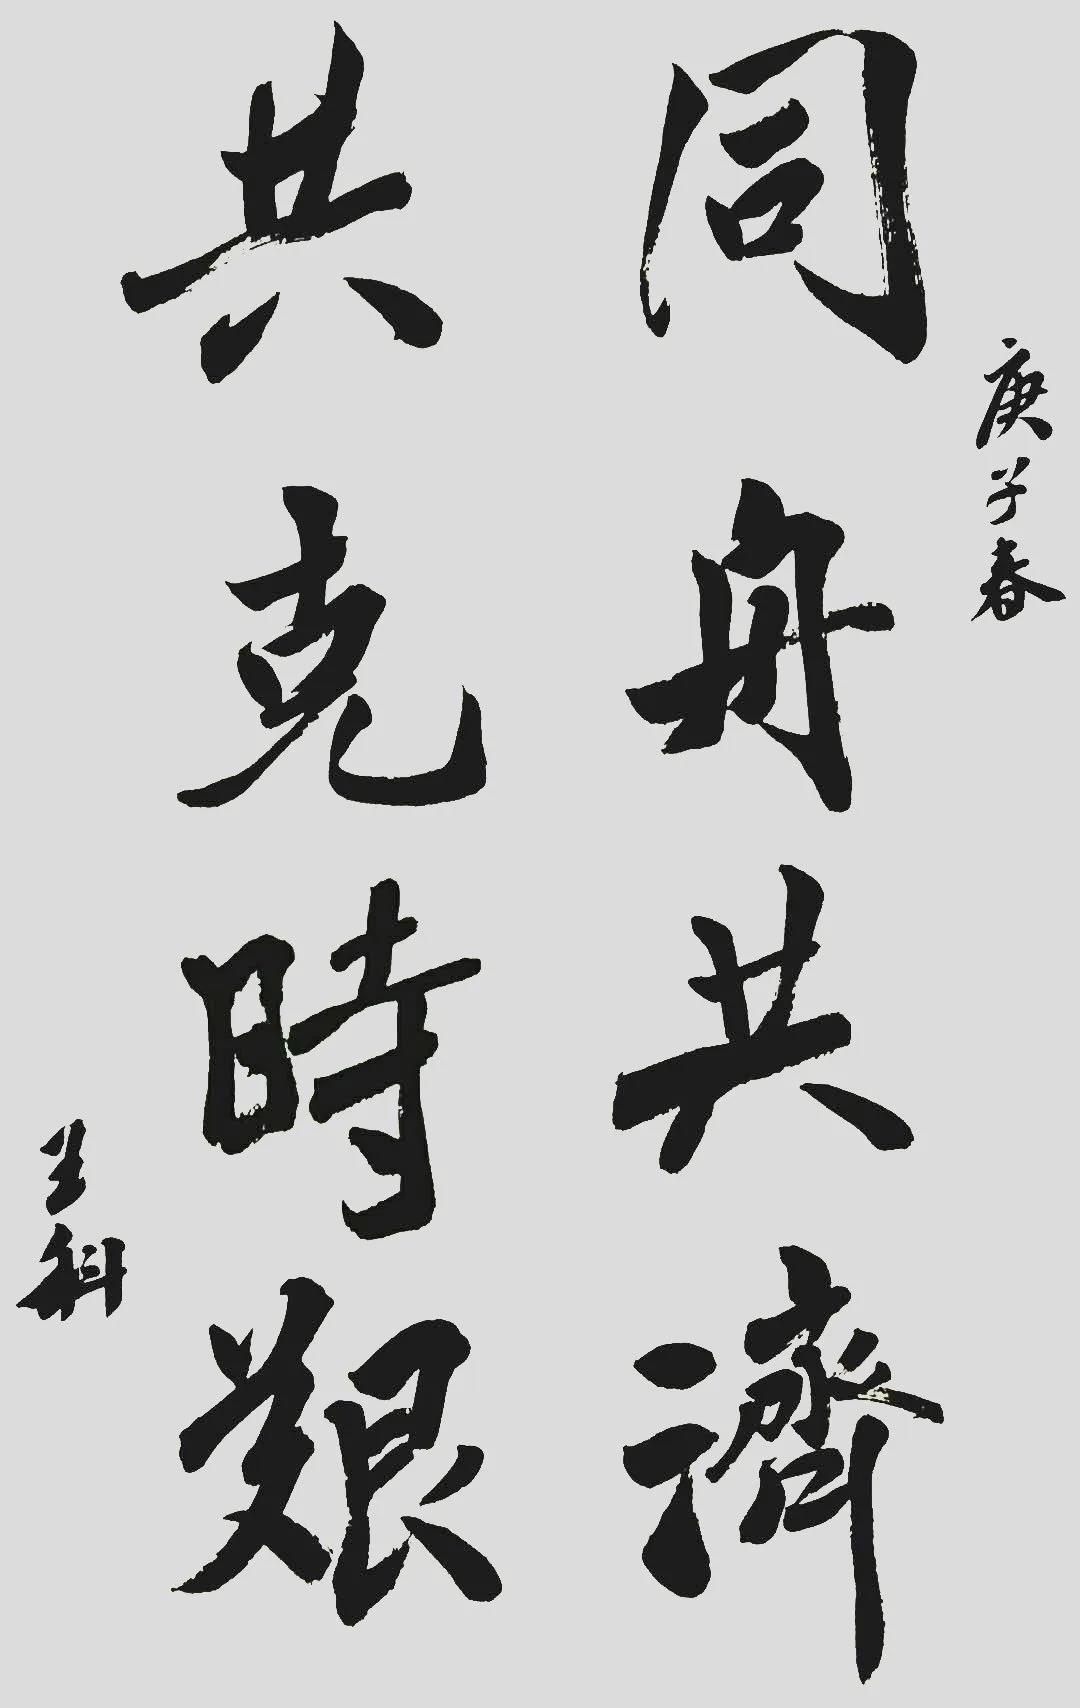 庚子春
同舟共濟
共克時艱
王科